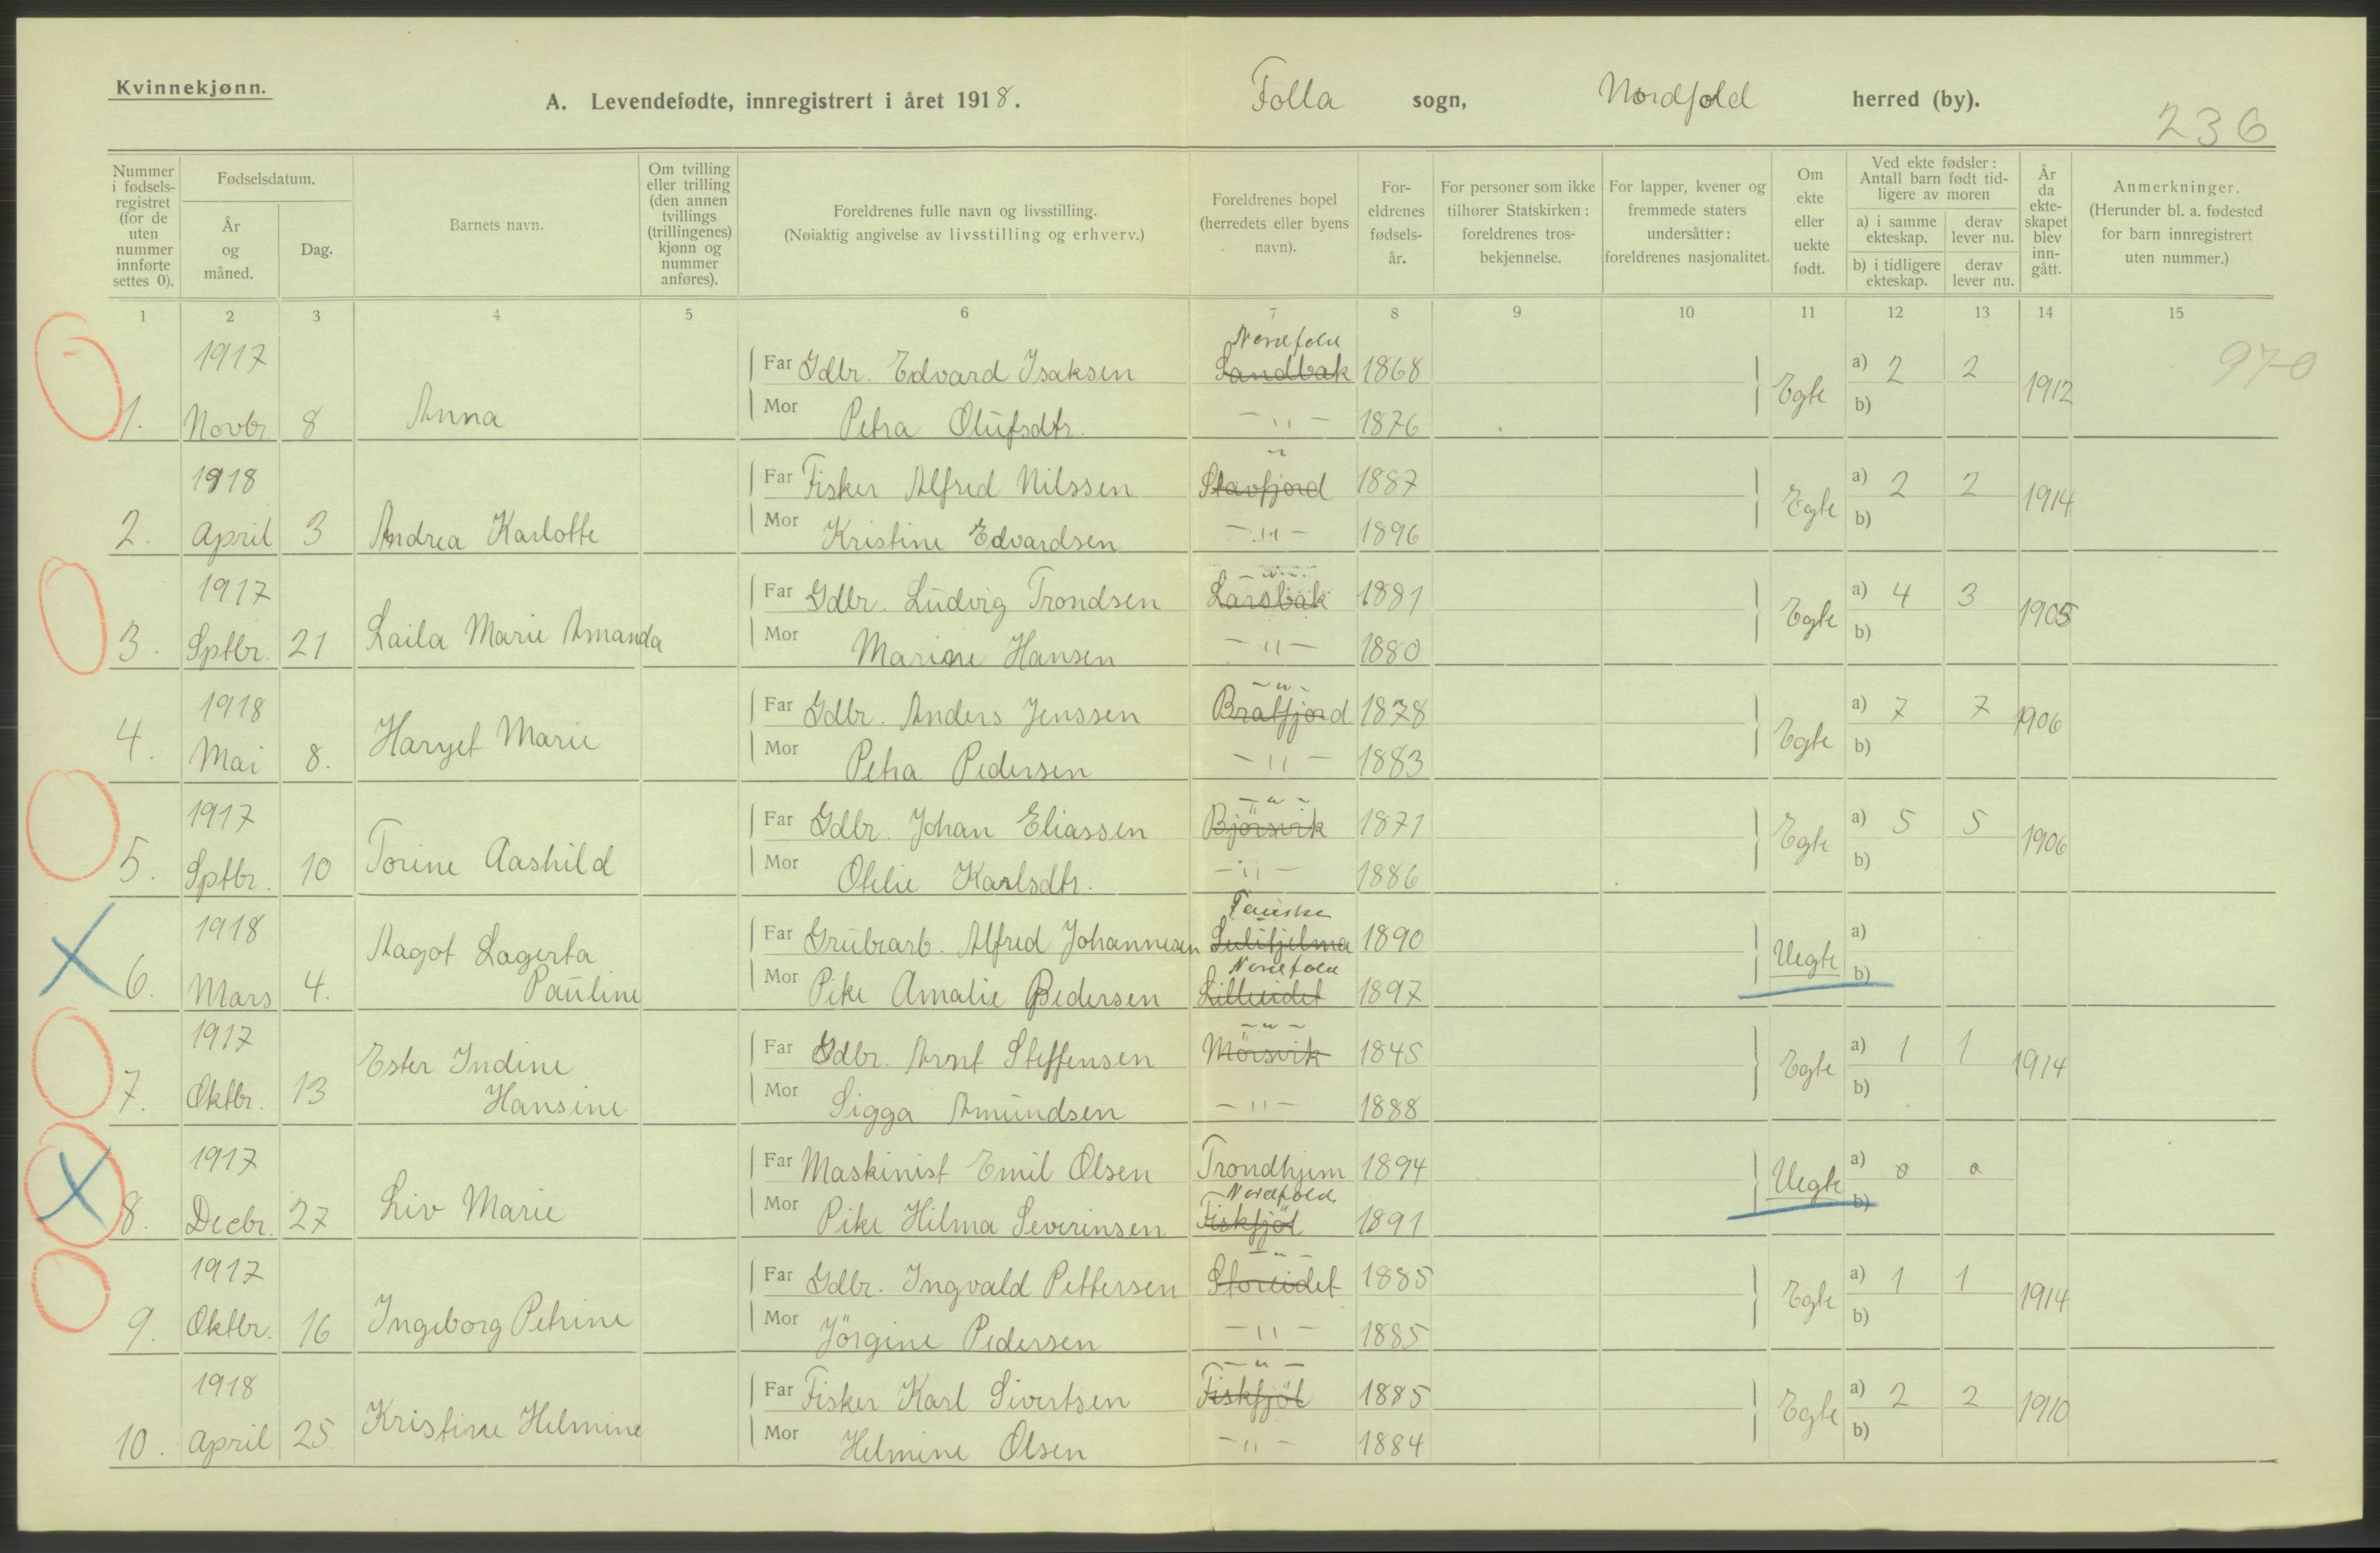 Kvinnekjønn.
A. Levendefødte, innregistrert i året 1918.
Folla sogn, Nordfold herred (by).
236
Nummer i fødsels-registret (for de uten nummer innførte settes 0).
Fødselsdatum.
År og måned.
Dag.
Barnets navn.
Om tvilling eller trilling (den annen tvillings (trillingenes) kjønn og nummer anføres).
Foreldrenes fulle navn og livsstilling.
(Nøiaktig angivelse av livsstilling og erhverv.)
Foreldrenes bopel (herredets eller byens navn).
For-eldrenes fødsels-år.
For personer som ikke tilhører Statskirken: foreldrenes tros-bekjennelse.
For lapper, kvener og fremmede staters undersåtter: foreldrenes nasjonalitet.
Om ekte eller uekte født.
Ved ekte fødsler: Antall barn født tid-ligere av moren
a) i samme ekteskap. derav lever nu.
b) i tidligere ekteskap. derav lever nu.
År da ekte-skapet blev inn-gått.
Anmerkninger.
(Herunder bl. a. fødested for barn innregistrert uten nummer.)
1 2 3 4 5 6 7 8 9 10 11 12 13 14 15
Nordfold
1917 Far Gdbr. Edvard Isaksen Sandbak 1868 a) 2 2 970
1. Novbr. 8 Anna Mor Petra Olufsdtr. -"- 1876 Egte b) 1912
"
1918 Far Fisker Alfred Nilssen Stavfjord 1887 a) 2 2
2. April 3 Andrea Karlotte Mor Kristine Edvardsen -"- 1896 Egte b) 1914
-"-
1917 Far Gdbr. Ludvig Trondsen Larsbak 1881 a) 4 3
3. Sptbr. 21 Laila Marie Amanda Mor Marine Hansen -"- 1880 Egte b) 1905
-"-
1918 Far Gdbr. Anders Jenssen Bratfjord 1878 a) 7 7
4. Mai 8. Haryet Marie Mor Petra Pedersen -"- 1883 Egte b) 1906
-"-
1917 Far Gdbr. Johan Eliassen Bjørsvik 1871 a) 5 5
5. Sptbr. 10 Torine Aashild Mor Otelie Karlsdtr. -"- 1886 Egte b) 1906
Fauske
1918 Far Grubearb. Alfred Johannesen Sulitjelma 1890 a)
Aagot Lagerta
Nordfold
6. Mars 4. Pauline Mor Pike Amalie Pedersen Lilleeidet 1897 Uegte b)
-"-
1917 Far Gdbr. Arnt Steffensen Mörsvik 1845 a) 1 1
Ester Indine
7. Oktbr. 13 Hansine Mor Sigga Amundsen -"- 1888 Egte b) 1914
1917 Far Maskinist Emil Olsen Trondhjem 1894 a) 0 0
Nordfold
8. Decbr. 27 Liv Marie Mor Pike Hilma Severinsen Fiskfjöl 1891 Uegte b)
-"-
1917 Far Gdbr. Ingvald Pettersen Storeidet 1885 a) 1 1
9. Oktbr. 16 Ingeborg Petrine Mor Jörgine Pedersen -"- 1885 Egte b) 1914
-"-
1918 Far Fisker Karl Sivertsen Fiskfjöl 1885 a) 2 2
10. April 25. Kristine Helmine Mor Helmine Olsen -"- 1884 Egte b) 1910